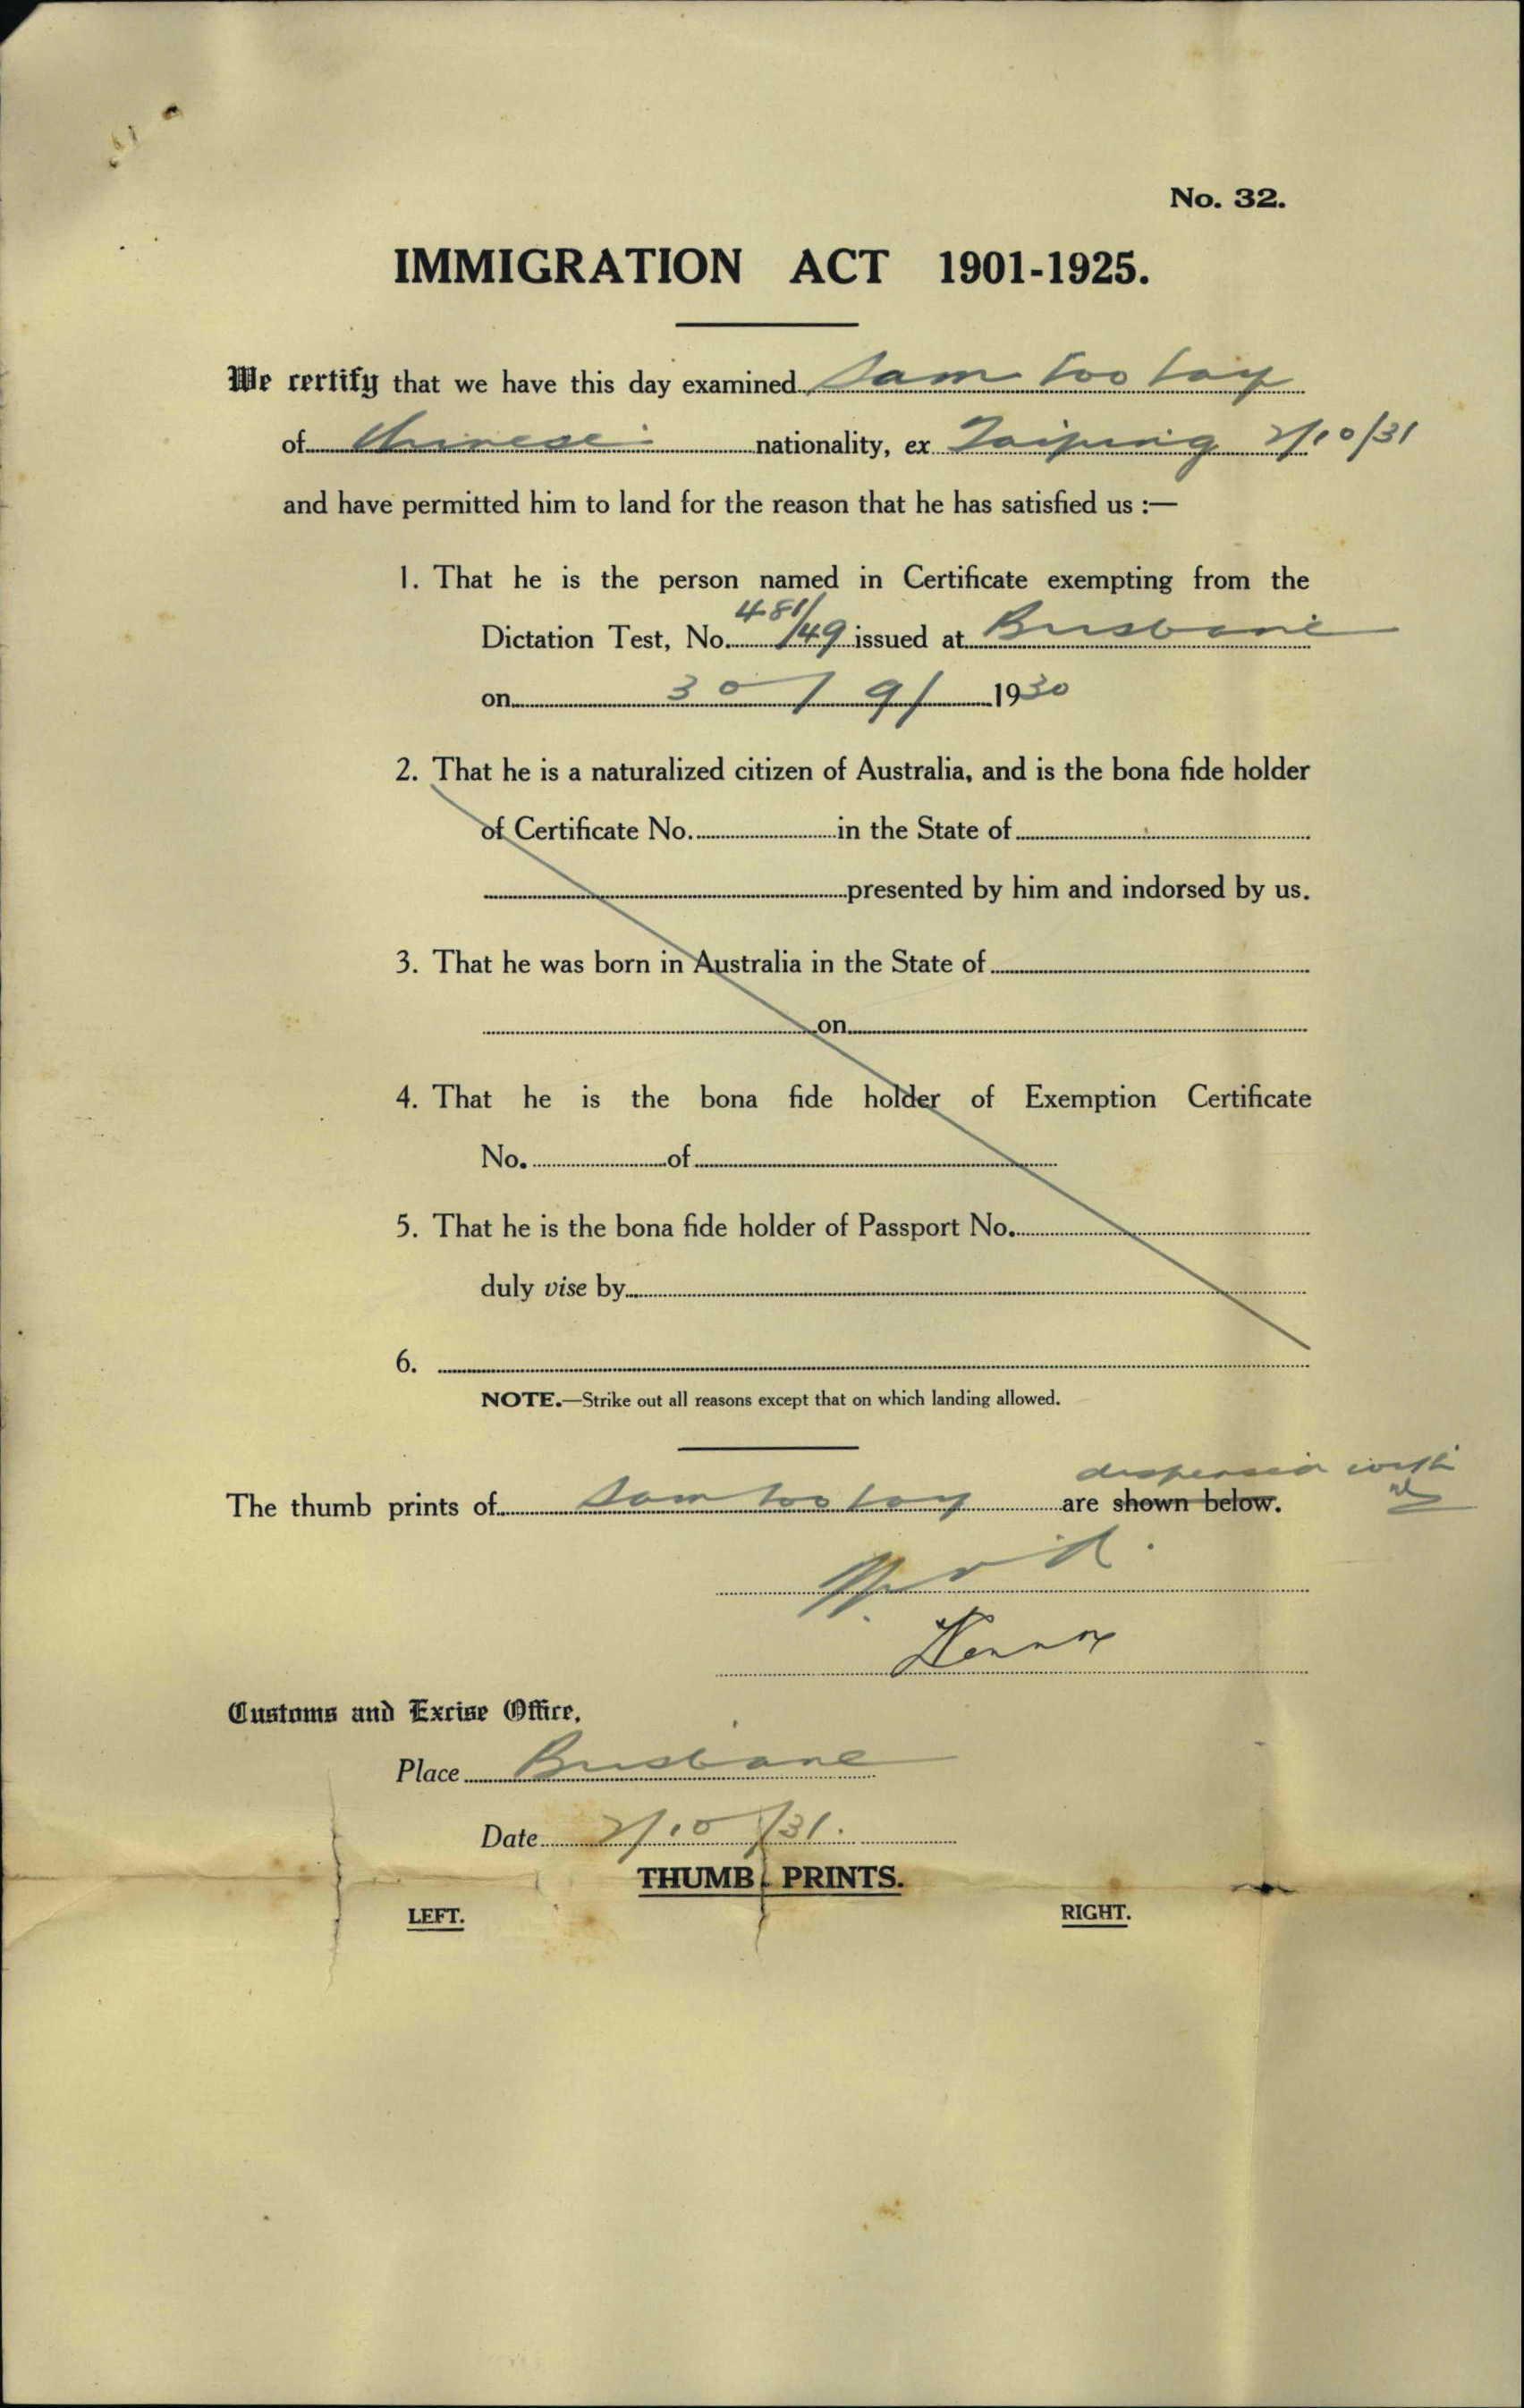 No. 32.
IMMIGRATION ACT 1901-1925.
We certify that we have this day examined Sam Too Loy
of Chinese nationality, ex Taiping 2/10/31
and have permitted him to land for the reason that he has satisfied us :—
1. That he is the person named in Certificate exempting from the
Dictation Test, No. 481/49 issued at Brisbane
on 30/9/1930
2. That he is a naturalized citizen of Australia, and is the bona fide holder
of Certificate No. in the State of
presented by him and indorsed by us.
3. That he was born in Australia in the State of
on
4. That he is the bona fide holder of Exemption Certificate
No. of
5. That he is the bona fide holder of Passport No.
duly vise by
6.
NOTE.—Strike out all reasons except that on which landing allowed.
dispensed with
The thumb prints of Sam Too Loy are shown below.
Customs and Excise Office,
Place Brisbane
Date 2/10/31.
THUMB PRINTS.
LEFT. RIGHT.